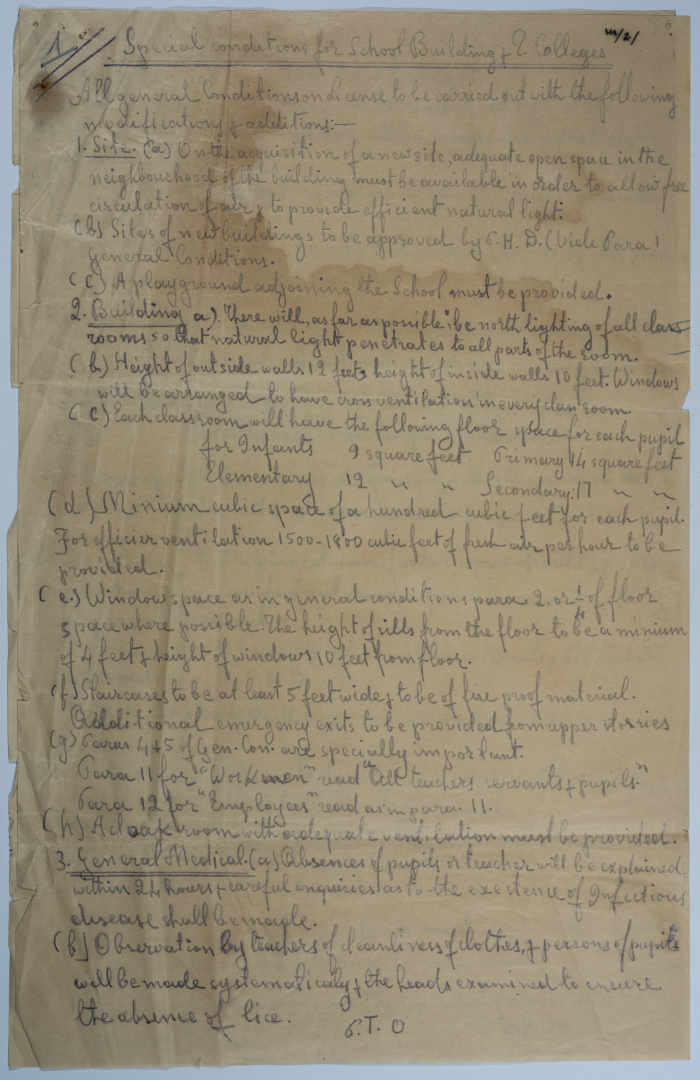 1. Special conditions for School Building & T. Colleges
All general Conditions on License to be carried out with the following
modifications & additions:—
1. Site. (a) On the acquisition of a new site, adequate open space in the
neighbourhood of the building must be available in order to allow free
circulation of air & to provide efficient natural light.
(b) Sites of new buildings to be approved by P. H. D. (Vide Para 1
General Conditions.
(c) A playground adjoining the School must be provided.
2. Building a). There will, as far as possible, be north lighting of all class
rooms so that natural light penetrates to all parts of the room.
(b.) Height of outside walls 12 feet, height of inside walls 10 feet. Windows
will be arranged to have cross ventilation in every class room.
(c) Each classroom will have the following floor space for each pupil
for Infants 9 square feet Primary 14 square feet
Elementary 12 " " Secondary: 17 " "
(d) Minium cubic space of a hundred cubic feet for each pupil.
For efficier ventilation 1500-1800 cubic feet of fresh air per hour to be
provided.
(e.) Window space as in general conditions para. 2. or of floor
space where possible. The height of sills from the floor to be a minium
of 4 feet & height of windows 10 feet from floor.
(f) Staircases to be at least 5 feet wide & to be of fire prof material.
Additional emergency exits to be provided from upper stories
(g) Paras 4 & 5 of Gen. Con. are specially important.
Para 11 for "Workmen" read "All teachers servants & pupils."
Para 12 for "Employees" read as in para. 11.
(h) A cloak room with adequate ventilation must be provided.
3. General Medical. (a) Absences of pupils or teacher will be explained,
within 24 hours & careful enquiries as to the existence of Infectious
disease shall be made.
(b) Observation by teachers of cleanliness of clothes, & persons of pupils
will be made systematicaly & the heads examined to ensure
the absence of lice.
P. T. O